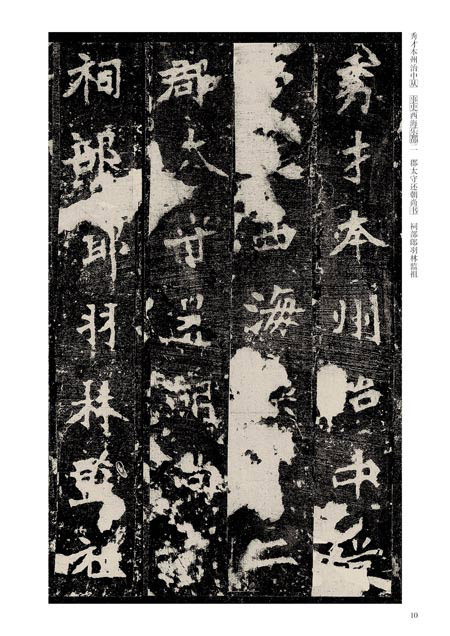 秀才本州治中從
西海二
郡太守還朝尚
祠部郎羽林監祖
秀才本州治中从 事史西海乐都二 郡太守还朝尚书 祠部郎羽林监祖
10